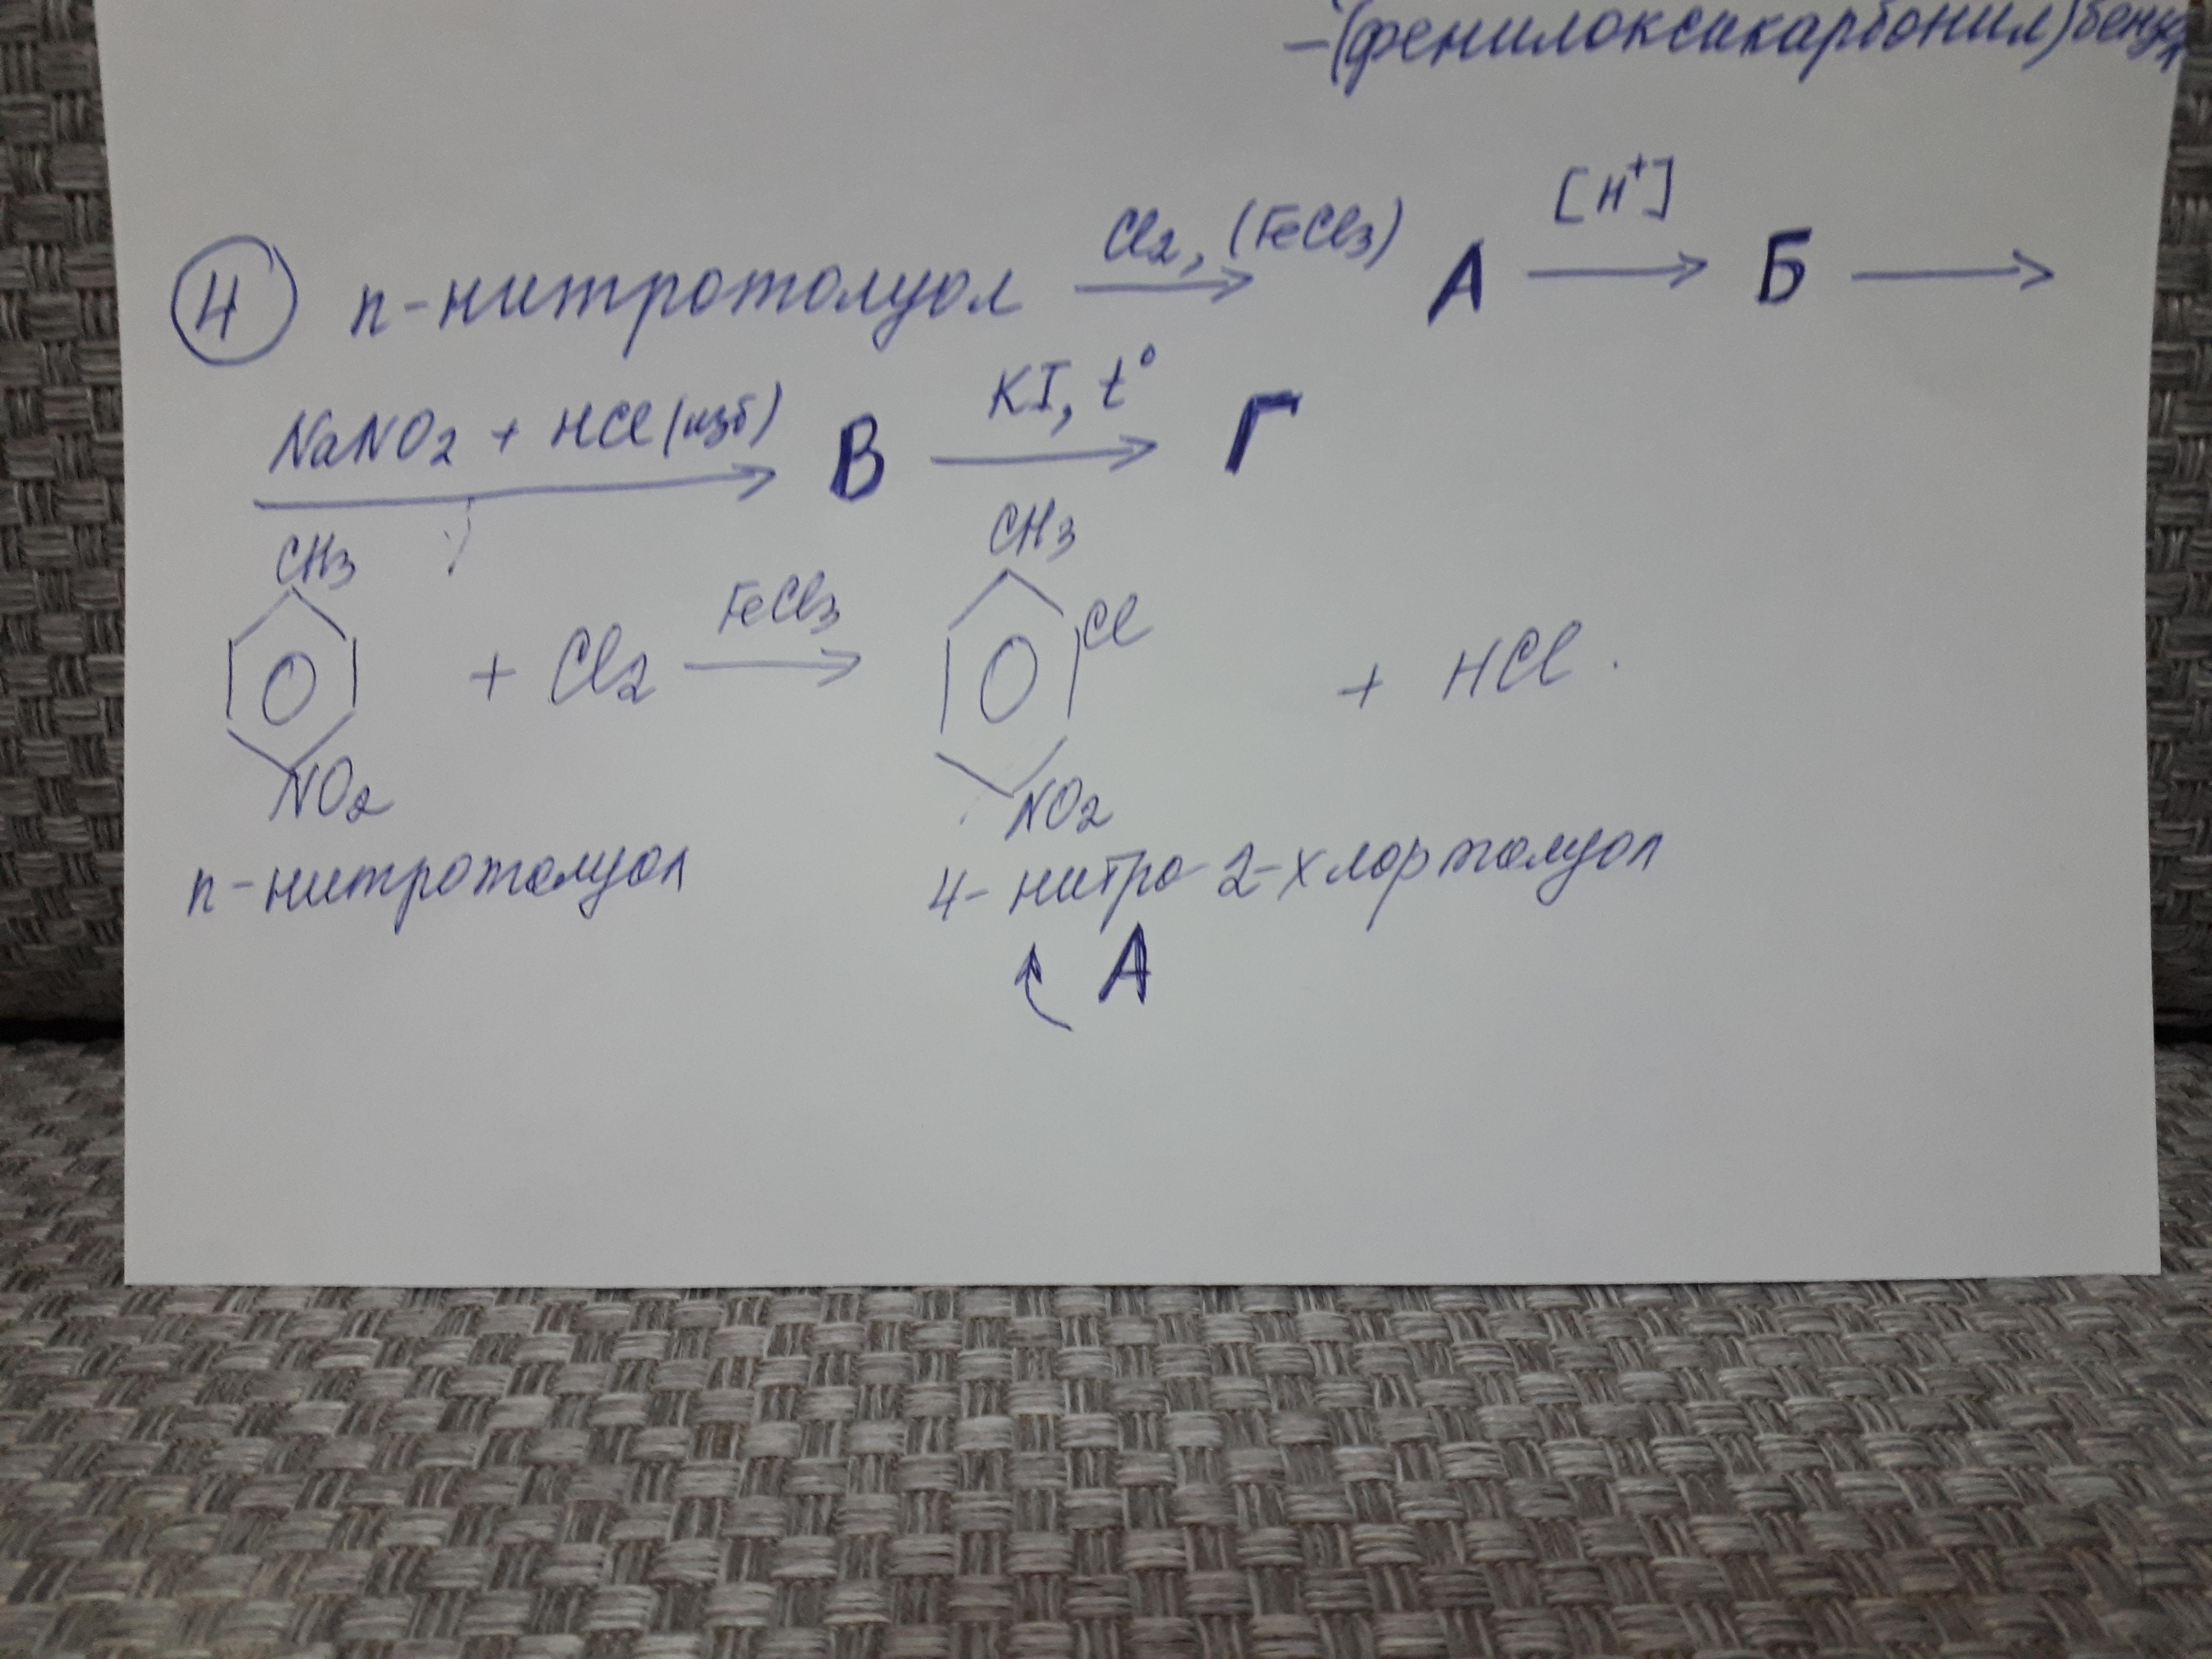 -(фенилоксикарбонил)бенз
4 п-нитротолуол Cl2, (FeCl3) А [H+] Б
NaNO2 + HCl (изб) В KI, t° Г
CH3 CH3
+ Cl2 FeCl3 Cl + HCl.
NO2 NO2
п-нитротолуол 4-нитро-2-хлортолуол
А